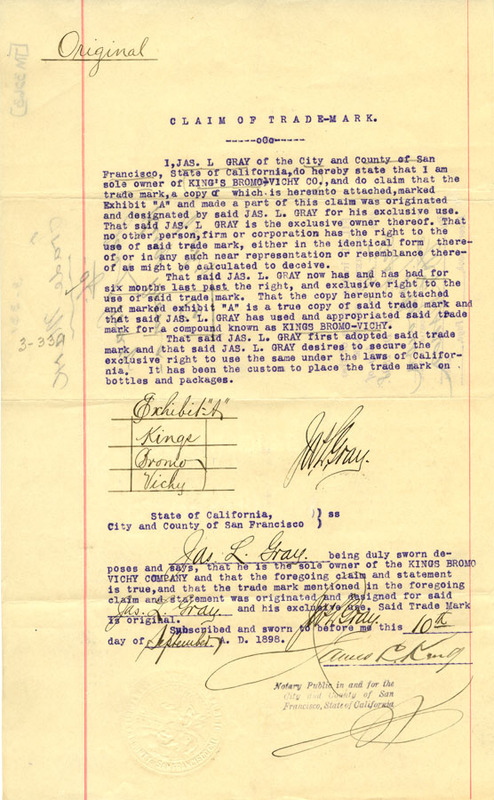 Original
CLAIM OF TRADE-MARK.
-----oOo-----
I, JAS. L GRAY of the City and County of San
Francisco, State of California, do hereby state that I am
sole owner of KING'S BROMO-VICHY CO., and do claim that the
trade mark, a copy of which is hereunto attached, marked
Exhibit "A" and made a part of this claim was originated
and designated by said JAS. L. GRAY for his exclusive use.
That said JAS. L GRAY is the exclusive owner thereof. That
no other person, firm or corporation has the right to the
use of said trade mark, either in the identical form there-
of or in any such near representation or resemblance there-
of as might be calculated to deceive.
That said JAS. L. GRAY now has and has had for
six months last past the right, and exclusive right to the
use of said trade mark. That the copy hereunto attached
and marked exhibit "A" is a true copy of said trade mark and
that said JAS. L. GRAY has used and appropriated said trade
mark for a compound known as KINGS BROMO-VICHY.
3-330
That said JAS. L. GRAY first adopted said trade
mark and that said JAS. L. GRAY desires to secure the
exclusive right to use the same under the laws of Califor-
nia. It has been the custom to place the trade mark on
bottles and packages.
Exhibit "A"
Kings
Bromo
Vichy
Jas L Gray.
State of California, ) ss
City and County of San Francisco )
Jas. L. Gray. being duly sworn de-
poses and says, that he is the sole owner of the KINGS BROMO
VICHY COMPANY and that the foregoing claim and statement
is true, and that the trade mark mentioned in the foregoing
claim and statement was originated and designed for said
Jas. L. Gray and his exclusive use. Said Trade Mark
is original. Jas L Gray.
Subscribed and sworn to before me this 10th
day of September A. D. 1898.
James L. King
Notary Public in and for the
City and County of San
Francisco, State of California